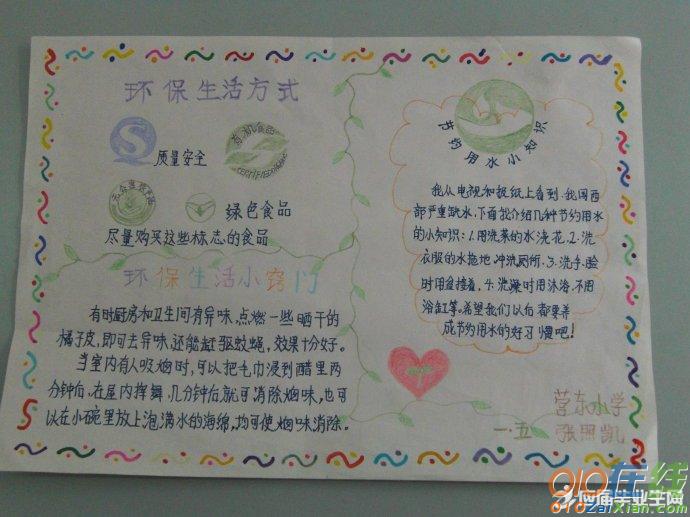 环保生活方式
质量安全
有机食品
绿色食品
尽量购买这些标志的食品
环保生活小窍门
有时厨房和卫生间有异味,点燃一些晒干的
橘子皮,即可去异味,还能驱蚊蝇,效果十分好。
当室内有人吸烟时,可以把毛巾浸到醋里两
分钟后,在屋内挥舞,几分钟后就可消除烟味,也可
以在小碗里放上泡满水的海绵,均可使烟味消除。
节约用水小知识
我从电视和报纸上看到,我国西
部严重缺水,下面我介绍几种节约用水
的小知识:1.用洗菜的水浇花.2.洗
衣服的水拖地冲洗厕所.3.洗手、脸
时用盆接着,4.洗澡时用沐浴,不用
浴缸等。希望我们以后都要养
成节约用水的好习惯吧!
营东小学
一.五 张照凯
010在线
010ZaiXian.com
应届毕业生网